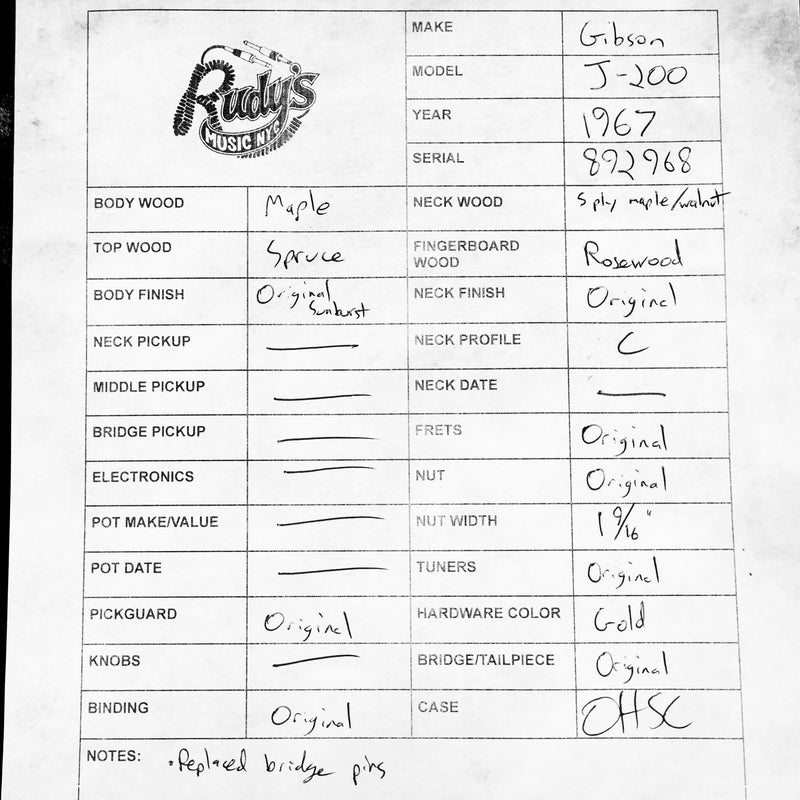 Rudy's
MUSIC NYC
MAKE Gibson
MODEL J-200
YEAR 1967
SERIAL 892968
BODY WOOD Maple NECK WOOD 5 ply maple/walnut
TOP WOOD Spruce FINGERBOARD WOOD Rosewood
BODY FINISH Original Sunburst NECK FINISH Original
NECK PICKUP — NECK PROFILE C
MIDDLE PICKUP — NECK DATE —
BRIDGE PICKUP — FRETS Original
ELECTRONICS — NUT Original
POT MAKE/VALUE — NUT WIDTH 1 9/16"
POT DATE — TUNERS Original
PICKGUARD Original HARDWARE COLOR Gold
KNOBS — BRIDGE/TAILPIECE Original
BINDING Original CASE OHSC
NOTES: •Replaced bridge pins